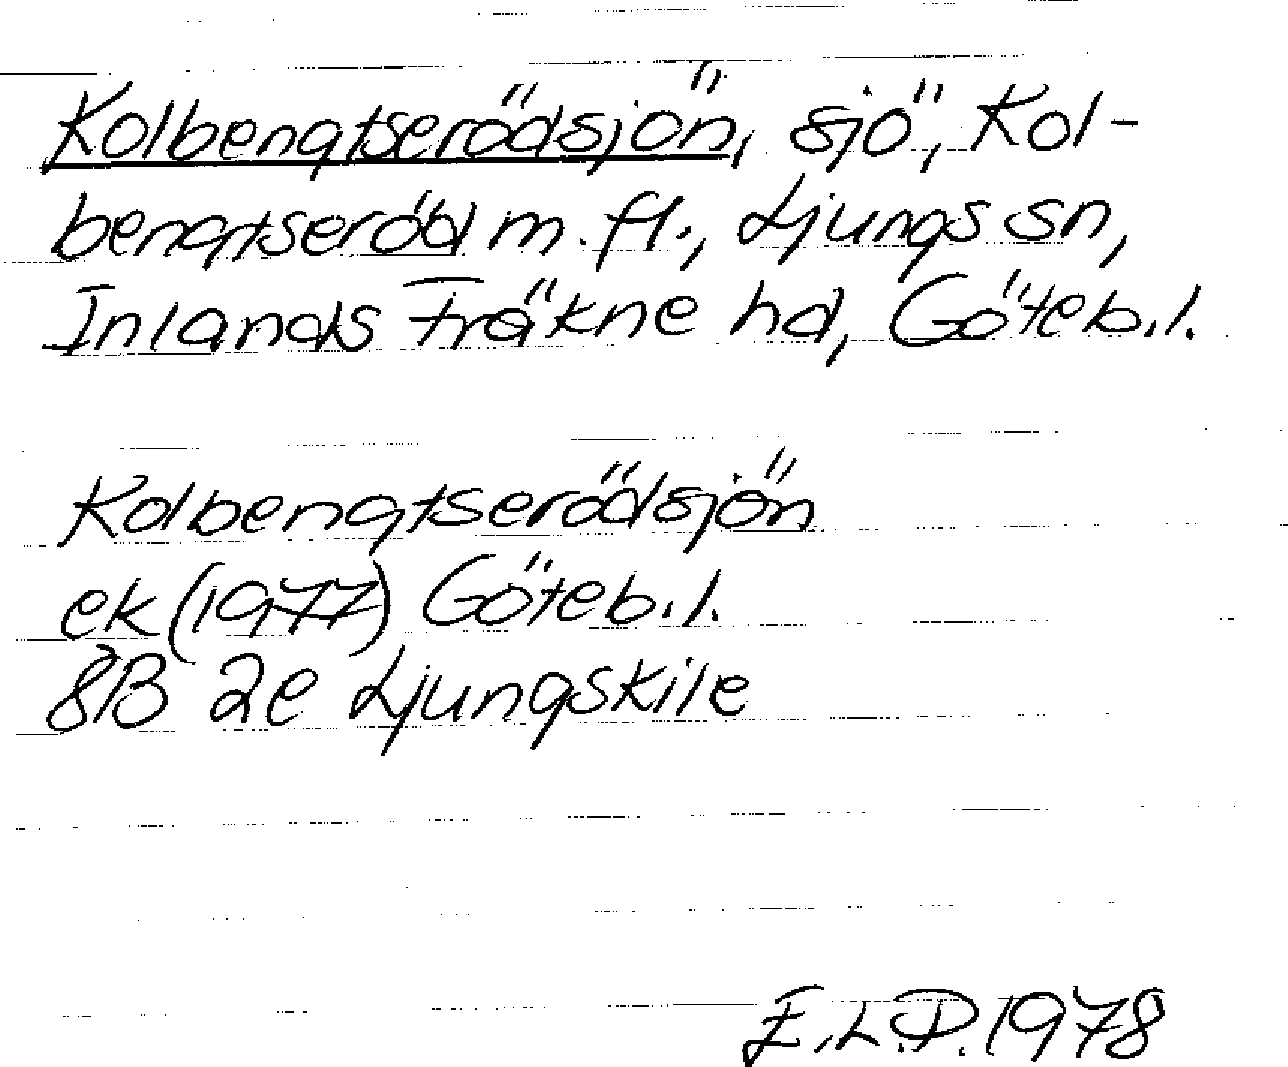 Kolbengtserödsjön, sjö, Kol-
bengtseröd m.fl., Ljungs sn,
Inlands Fräkne hd, Göteb.l.
Kolbengtserödsjön
ek (1977) Göteb.l.
8B 2e Ljungskile
E.L.D. 1978